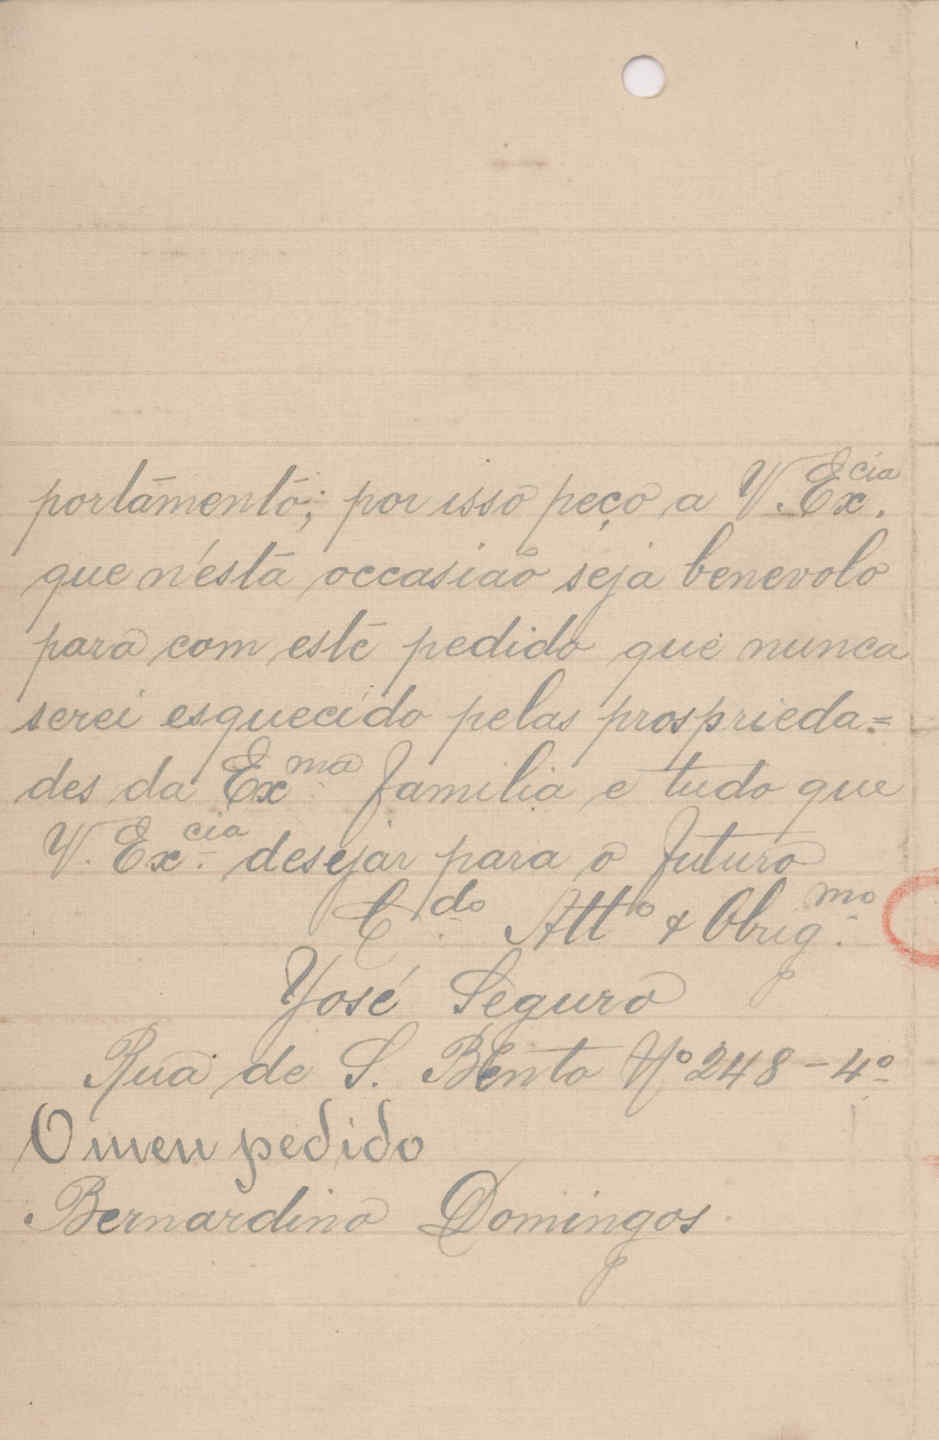 portamento; por isso peço a V. Ex.cia
que n'ésta occasião seja benevolo
para com este pedido que nunca
serei esquecido pelas prosprieda=
des da Exma familia e tudo que
V. Ex.cia desejar para o futuro
C.do Atto & Obrig.mo
José Seguro
Rua de S. Bento Nº 248 - 4º
O meu pedido
Bernardino Domingos